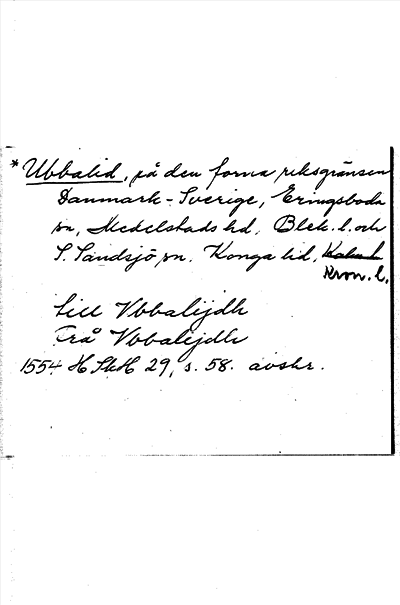 * Ubbalid, på den forna riksgränsen
Danmark - Sverige, Eringsboda
sn, Medelstads hd, Blek. l. och
S. Sandsjö sn, Konga hd, Kalm. l.
Kron. l.
till Vbbalijdh
Frå Vbbalijdh
1554 HSkH 29, s. 58. avskr.